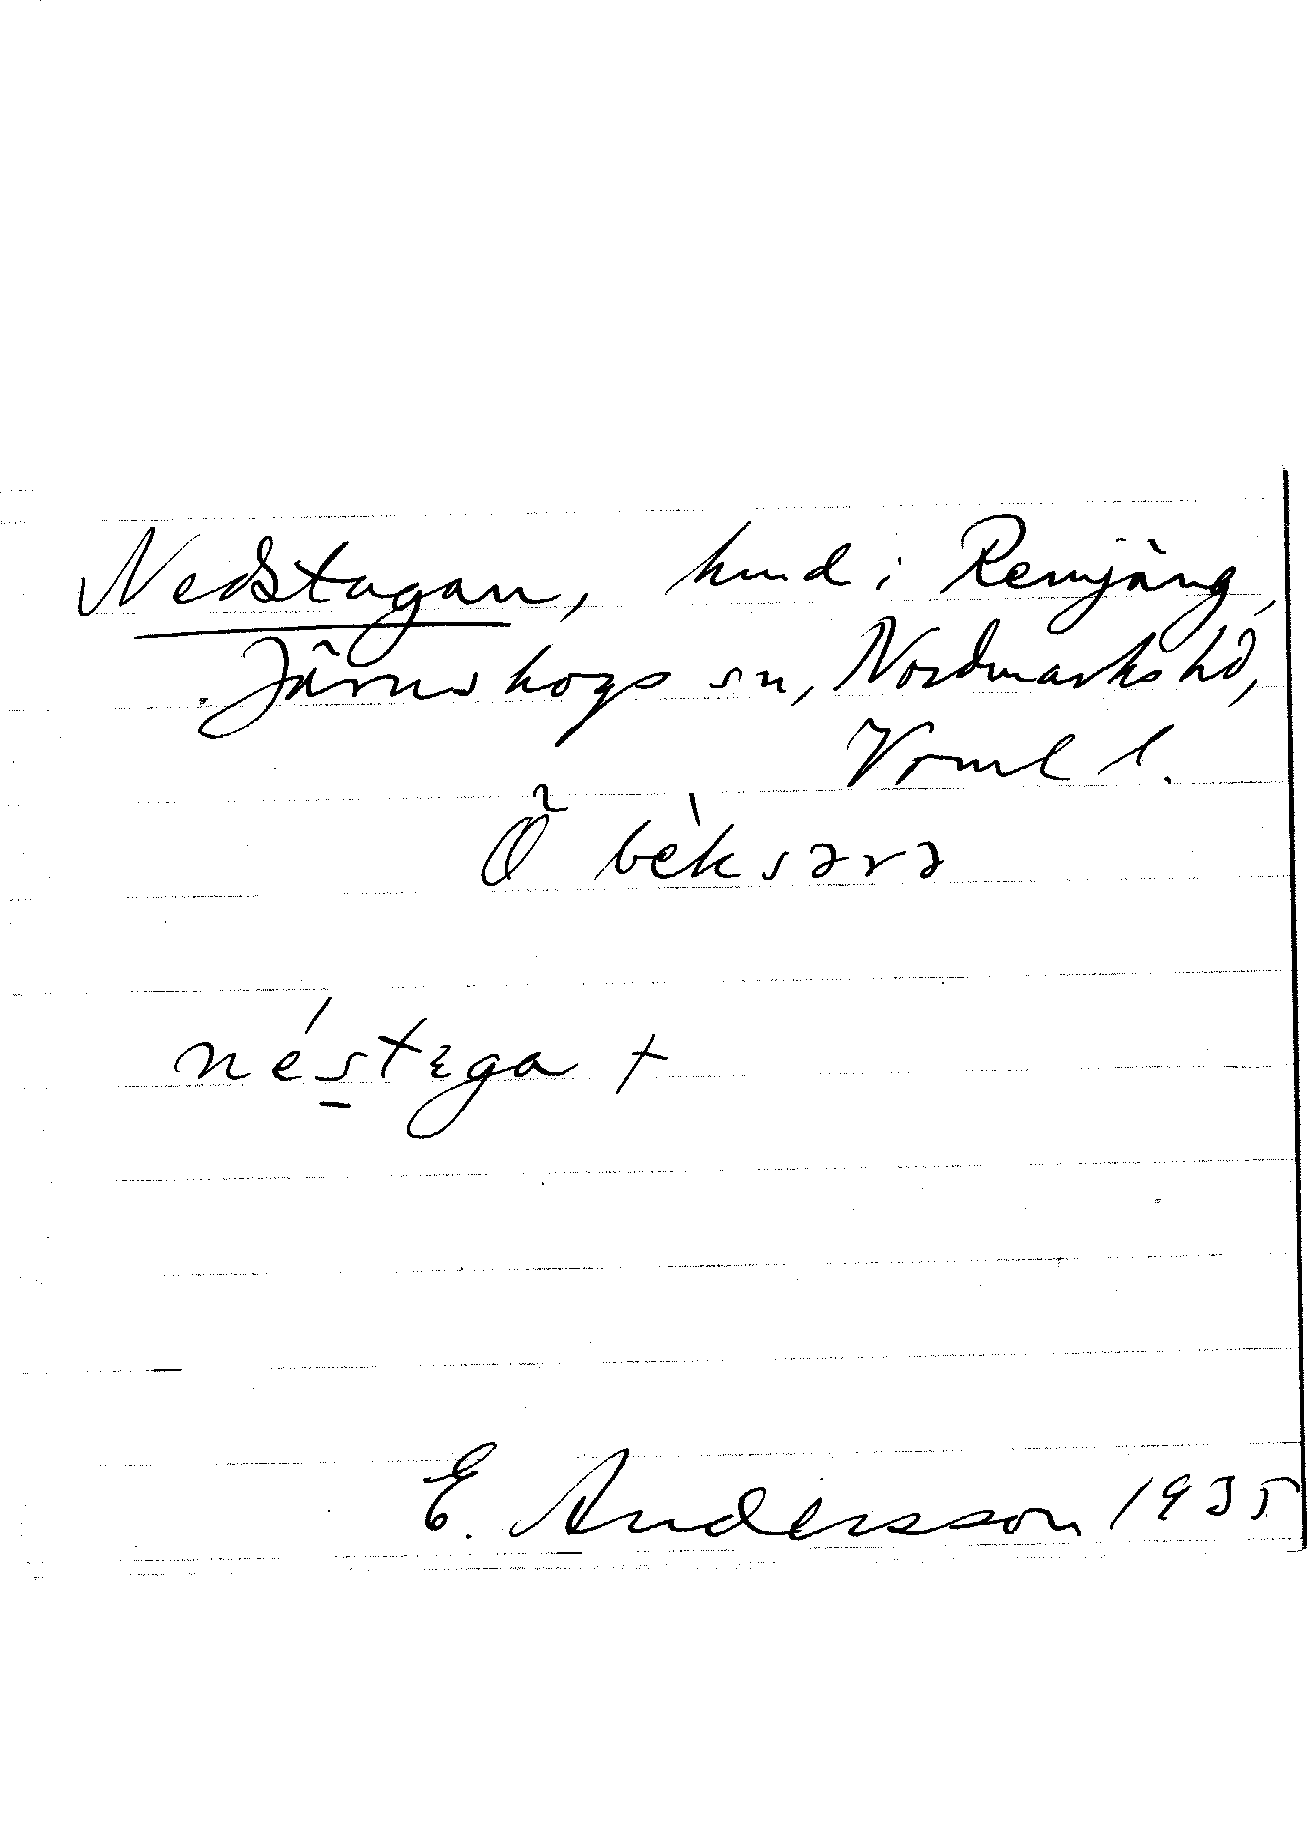 Nedstagan, hmd i Remjäng,
Järnskogs sn, Nordmarks hd,
Verml l.
Ö bèksərə
néstɛga +
E. Andersson 1935